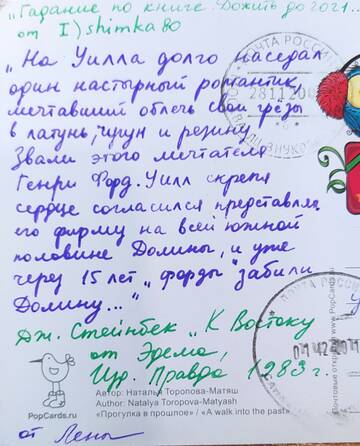 "Гадание по книге. Дожить до 2021...
от I)shimka80
„На Уилла долго наседал
один настырный романтик,
мечтавший облечь свои грёзы
в латунь, чугун и резину.
Звали этого мечтателя
Генри Форд. Уилл скрепя
сердце согласился представля
его фирму на всей южной
половине Долины, и уже
через 15 лет „форды" забили
Долину..."
Дж. Стейнбек „К Востоку
от Эдема,
Изд. Правда 1983 г.
от Лены
PopCards.ru
Автор: Наталья Торопова-Матяш
Author: Natalya Toropova-Matyash
«Прогулка в прошлое» / «A walk into the past»
www.PopCards.ru
ПОЧТА РОССИИ
281120
ПОЧТА РОССИИ